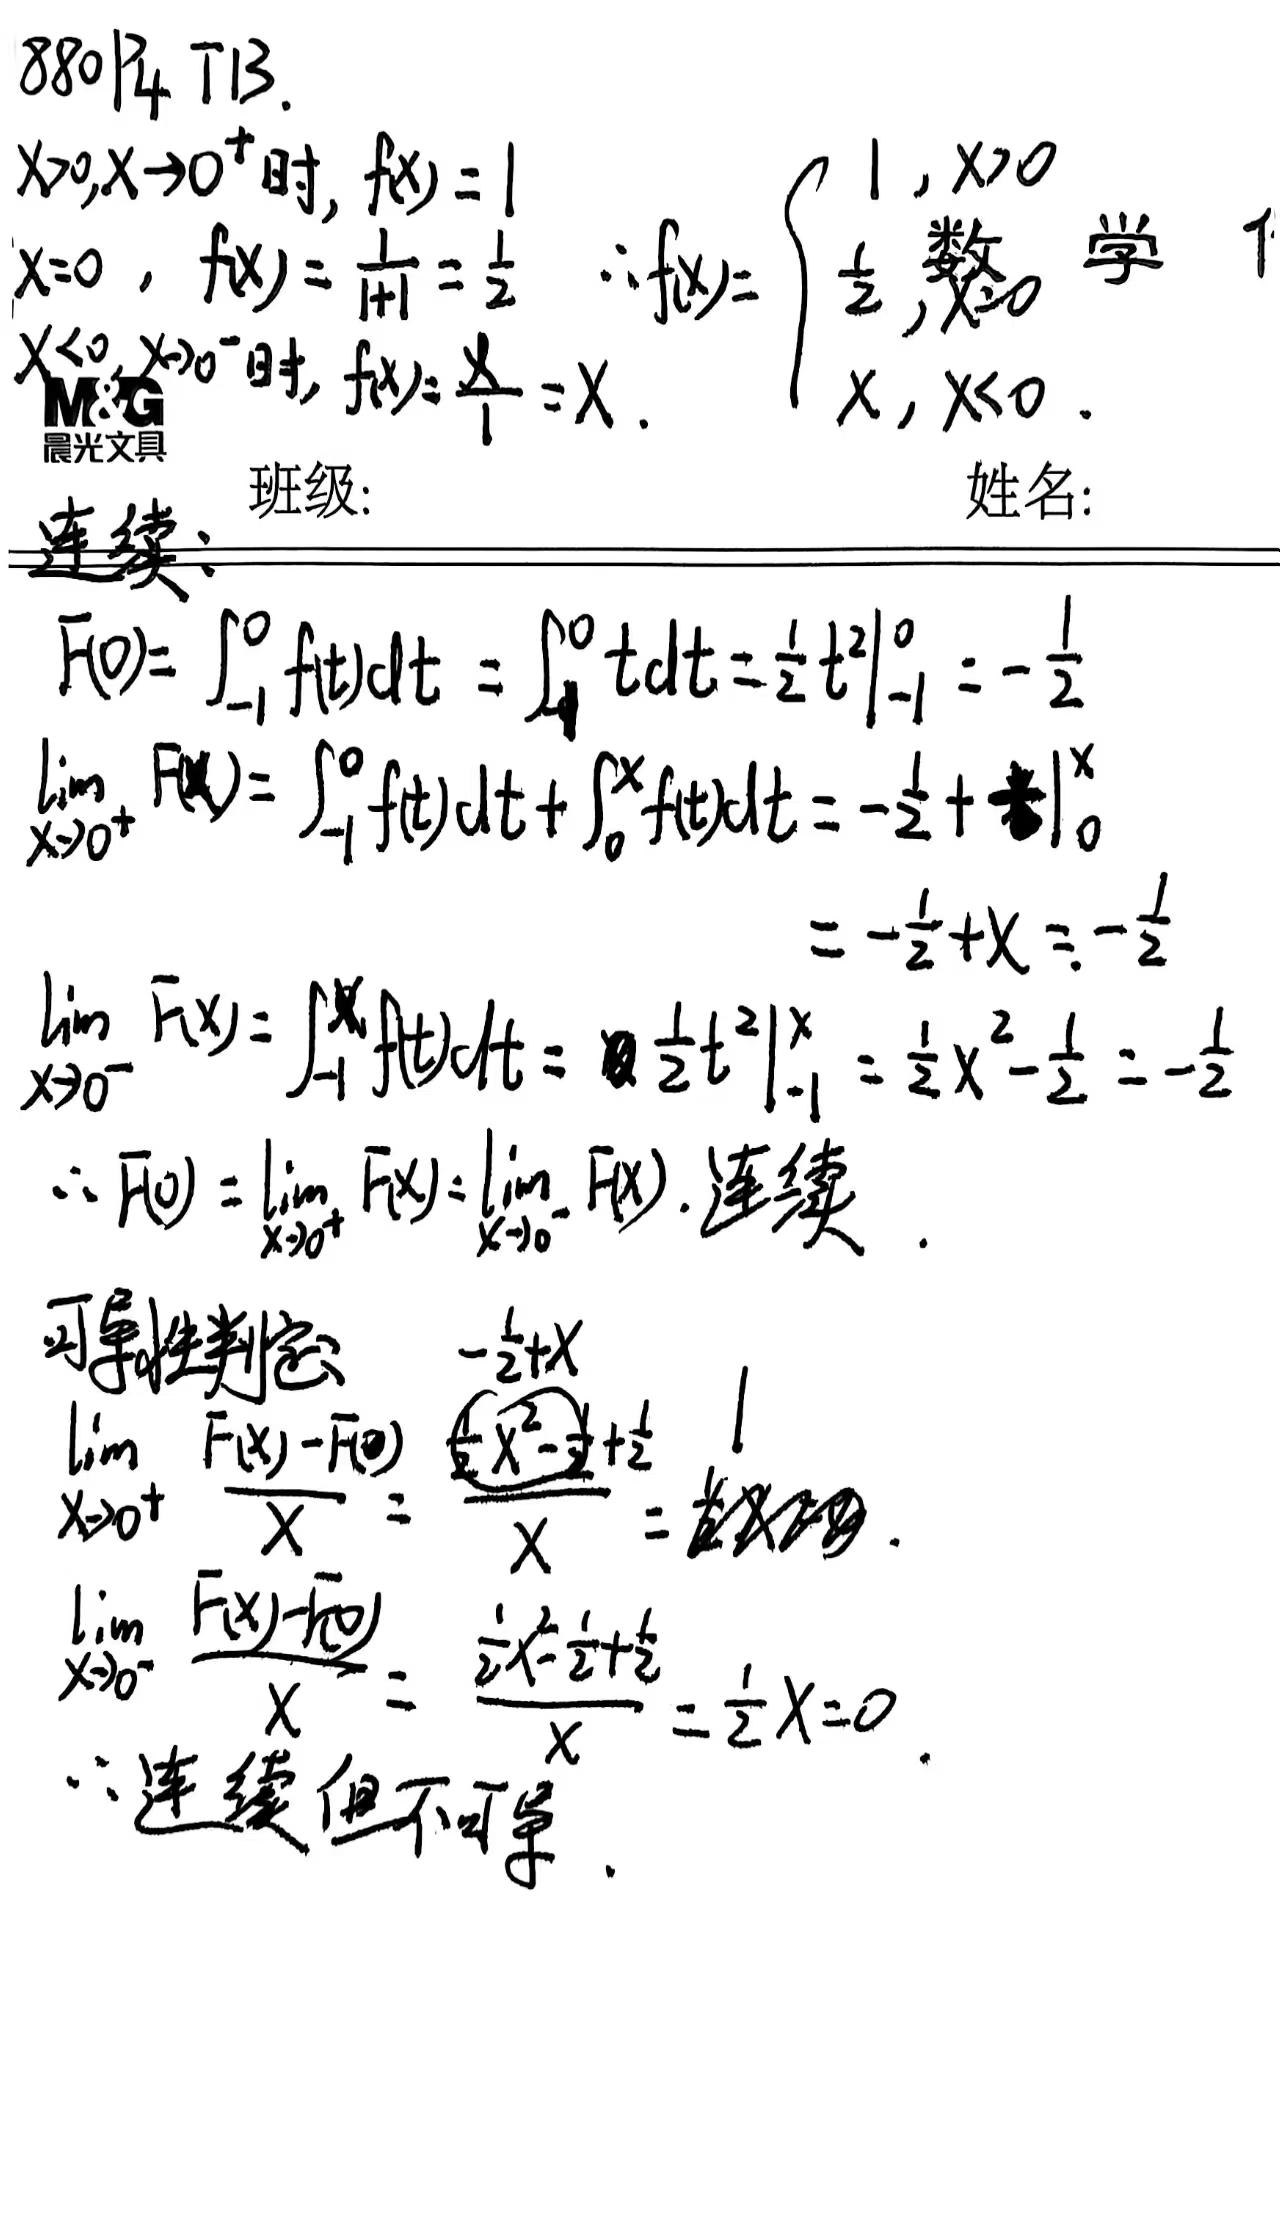 880 P4 T13.
x>0, x→0⁺时, f(x) = 1
x=0, f(x) = 1/(1+1) = 1/2 ∴ f(x) = { 1, x>0
1/2, x=0
x<0, x→0⁻时, f(x) = x/1 = x. x, x<0.
数 学
M&G
晨光文具
班级: 姓名:
连续:
F(0) = ∫₋₁⁰ f(t)dt = ∫₋₁⁰ tdt = 1/2 t²|₋₁⁰ = -1/2
lim x→0⁺ F(x) = ∫₋₁⁰ f(t)dt + ∫₀ˣ f(t)dt = -1/2 + t|₀ˣ
= -1/2 + x = -1/2
lim x→0⁻ F(x) = ∫₋₁ˣ f(t)dt = 1/2 t²|₋₁ˣ = 1/2 x² - 1/2 = -1/2
∴ F(0) = lim x→0⁺ F(x) = lim x→0⁻ F(x). 连续.
可导性判定:
-1/2+x
lim x→0⁺ (F(x)-F(0))/x = (1/2 x² - 1/2 + 1/2)/x = 1.
lim x→0⁻ (F(x)-F(0))/x = (1/2 x² - 1/2 + 1/2)/x = 1/2 x = 0.
∴ 连续但不可导.